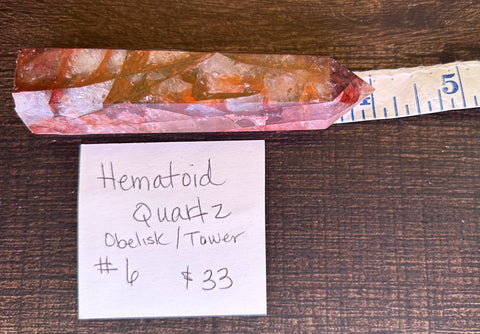 5
Hematoid
Quartz
Obelisk/Tower
#6 $33